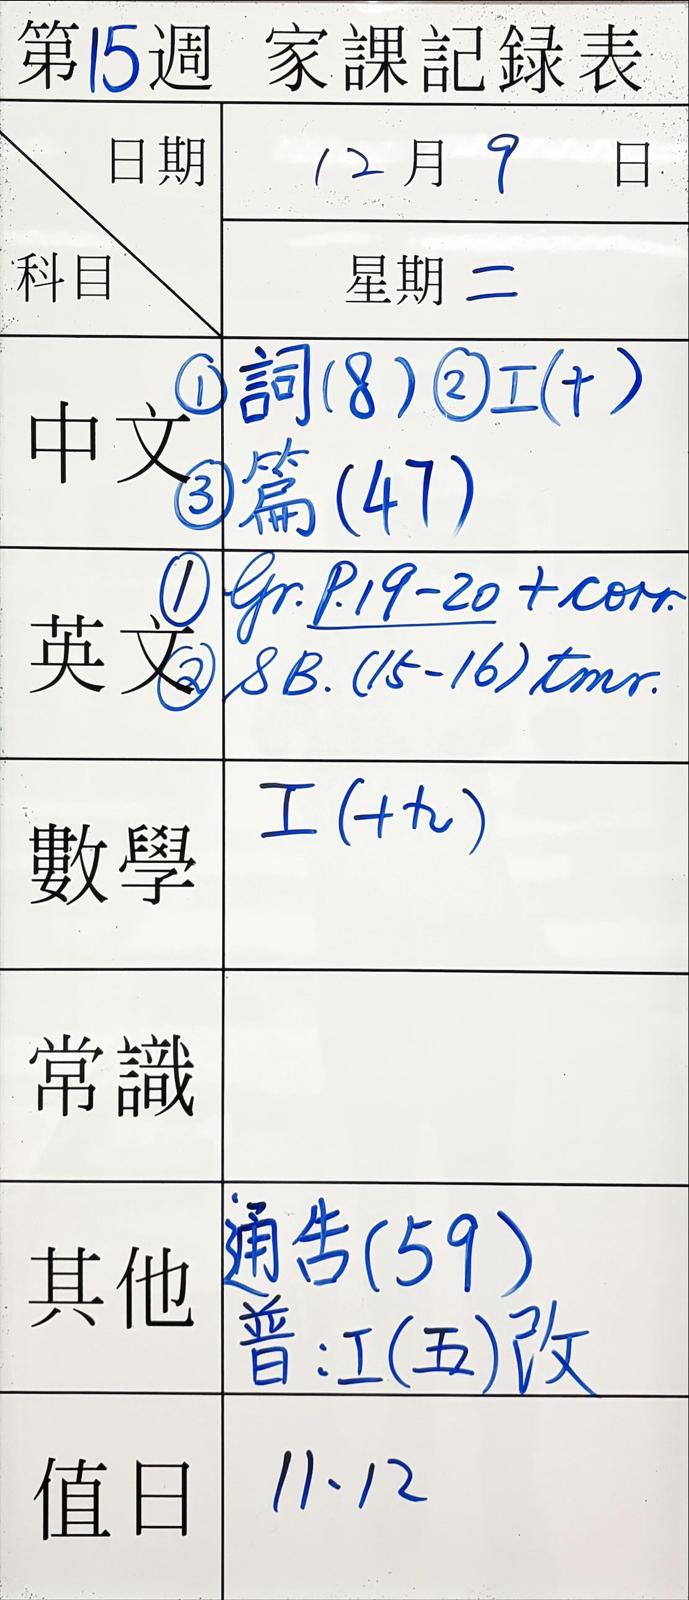 第15週 家課記録表
日期
12月9日
科目
星期二
中文
①詞(8)②工(十)
③篇(47)
英文
① Gr. P.19-20 + corr.
② SB. (15-16) tmr.
數學
工(十九)
常識
其他
通告(59)
普:工(五)改
值日
11、12